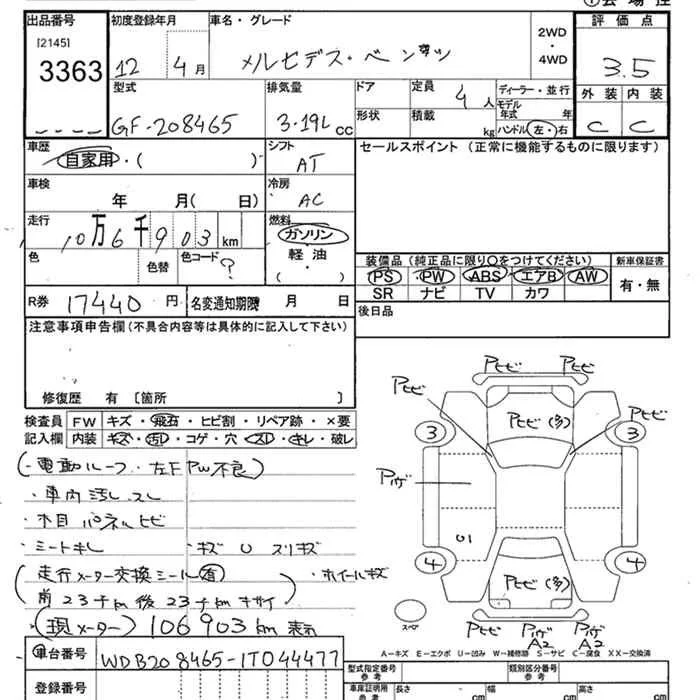 ①会場控
出品番号 初度登録年月 車名・グレード 2WD・4WD 評価点
[2145]
3363 12 4月 メルセデス・ベンツ 3.5
型式 排気量 ドア 定員 4人 ディーラー・並行 外装 内装
GF-208465 3.19L cc 形状 積載 kg モデル年式 年 ハンドル 左・右 C C
車歴 自家用・( ) シフト AT セールスポイント (正常に機能するものに限ります)
車検 年 月( 日) 冷房 AC
走行 10万6千903km 燃料 ガソリン
色 色替 色コード ? 軽油 ( ・ )
装備品 (純正品に限り○をつけてください) 新車保証書
PS PW ABS エアB AW 有・無
SR ナビ TV カワ
R券 17440円 名変通知期限 月 日 後日品
注意事項申告欄 (不具合内容等は具体的に記入して下さい)
修復歴 有 [箇所 ]
検査員 FW キズ・飛石・ヒビ割・リペア跡・×要
記入欄 内装 キズ・汚レ・コゲ・穴・スレ・キレ・破レ
(・電動ルーフ・左F PW不良)
・車内汚レ スレ
・木目 パネルヒビ
・シートキレ ・キズ U スリキズ
(走行メーター交換シール有) ・ホイールキズ
前 23千km 後 23千km キサイ
・(現メーター) 106903km 表示
車台番号 WDB208465-1T044477
登録番号
Pヒビ Pヒビ
Pヒビ Pヒビ(多) Pヒビ
3 3
Pハゲ
U1
4 4
Pヒビ(多)
スペア Pヒビ Pハゲ A2 Pヒビ A2
A－キズ E－エクボ U－凹み W－補修跡 S－サビ C－腐食 XX－交換済
型式指定番号 参考 類別区分番号 参考
車庫証明用 参考 長さ cm 幅 cm 高さ cm